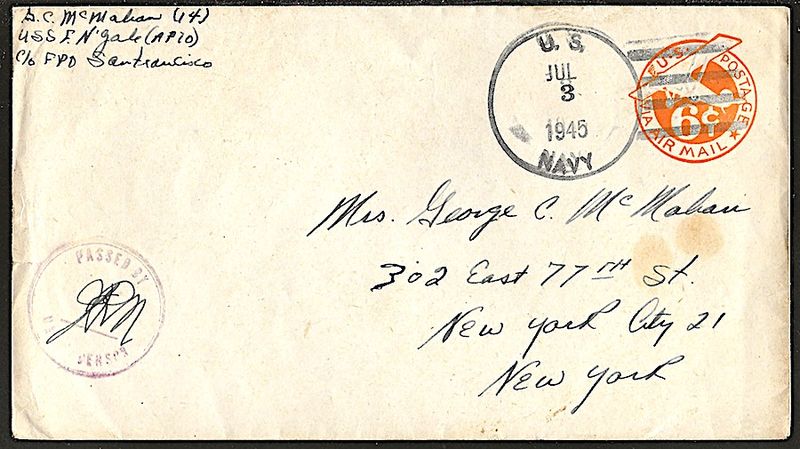 G.C. McMahan (14)
USS F. N'gale (AP20)
C/o FPO San francisco
U.S.
JUL
3
1945
NAVY
U.S. POSTAGE
6¢
VIA AIR MAIL
Mrs. George C. McMahan
302 East 77TH St.
New York City 21
New York
PASSED BY
CENSOR